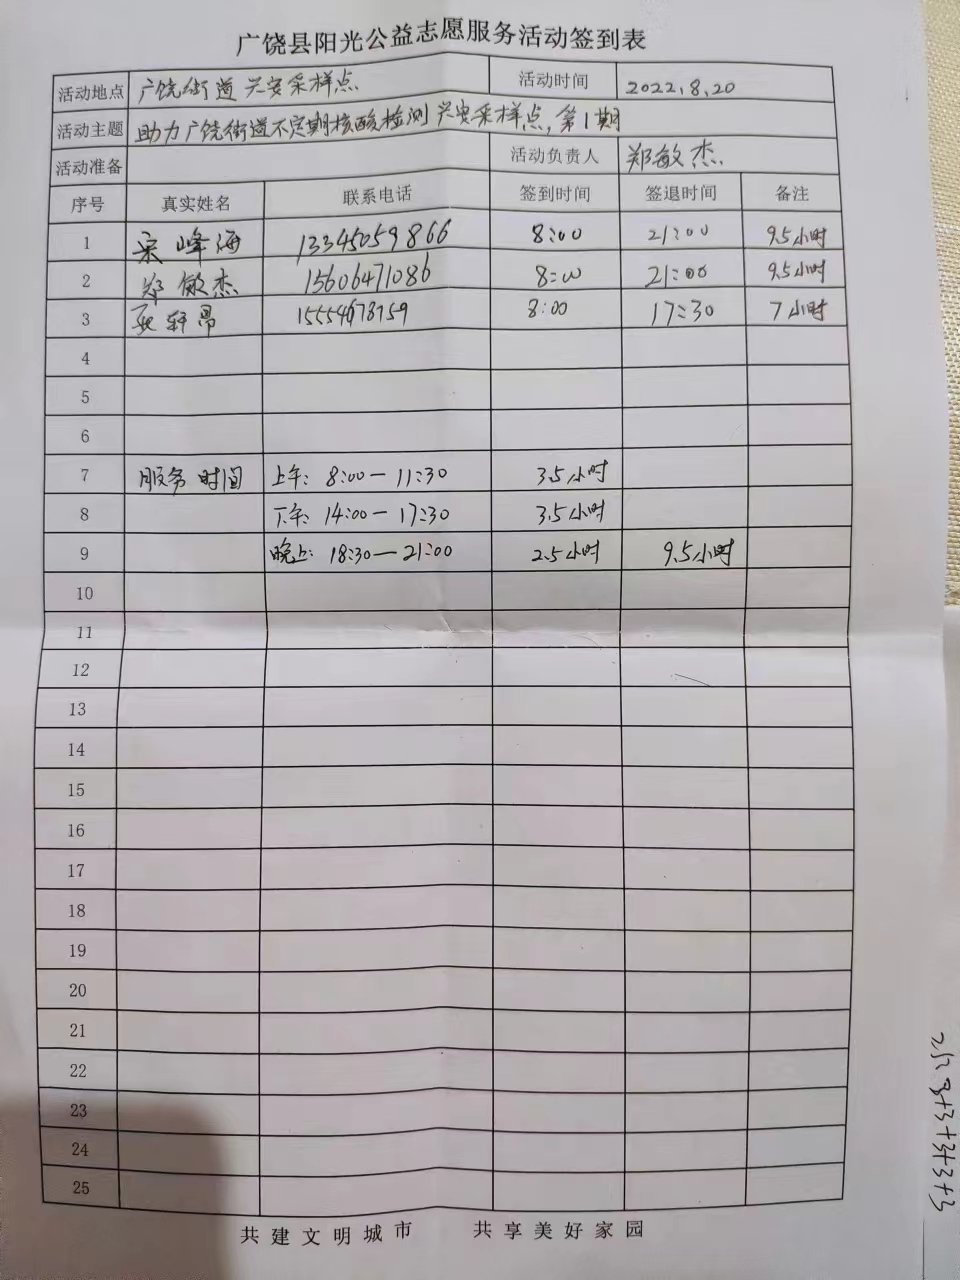 广饶县阳光公益志愿服务活动签到表
活动地点 广饶街道兴安采样点 活动时间 2022.8.20
活动主题 助力广饶街道不定期核酸检测兴安采样点,第1期
活动准备 活动负责人 郑敏杰
序号 真实姓名 联系电话 签到时间 签退时间 备注
1 宋峰海 13345059866 8:00 21:00 9.5小时
2 郑敏杰 15606471086 8:00 21:00 9.5小时
3 轩昂 15554678759 8:00 17:30 7小时
4
5
6
7 服务时间 上午: 8:00—11:30 3.5小时
8 下午: 14:00—17:30 3.5小时
9 晚上: 18:30—21:00 2.5小时 9.5小时
10
11
12
13
14
15
16
17
18
19
20
21
22
23
24
25
共建文明城市 共享美好家园